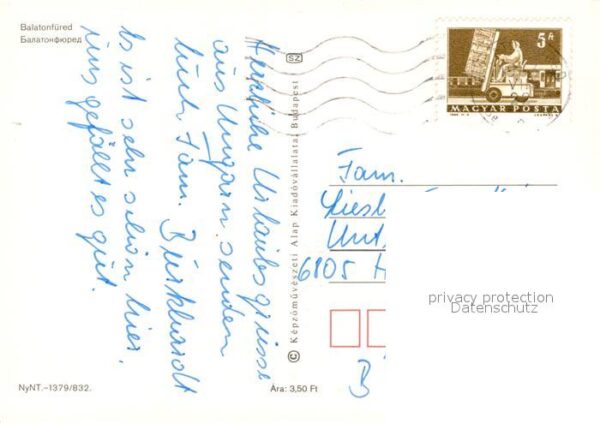 Balatonfüred
Балатонфюред
Herzliche Urlaubsgrüsse
aus Ungarn senden
Euch Fam. Burkhardt
Es ist sehr schön hier.
uns gefällt es gut.
NyNT.–1379/832.
Ára: 3,50 Ft
© Képzőművészeti Alap Kiadóvállalata, Budapest
SZ
5 Ft
MAGYAR POSTA
Fam.
Liesb
Unt
6105 H
B
privacy protection
Datenschutz